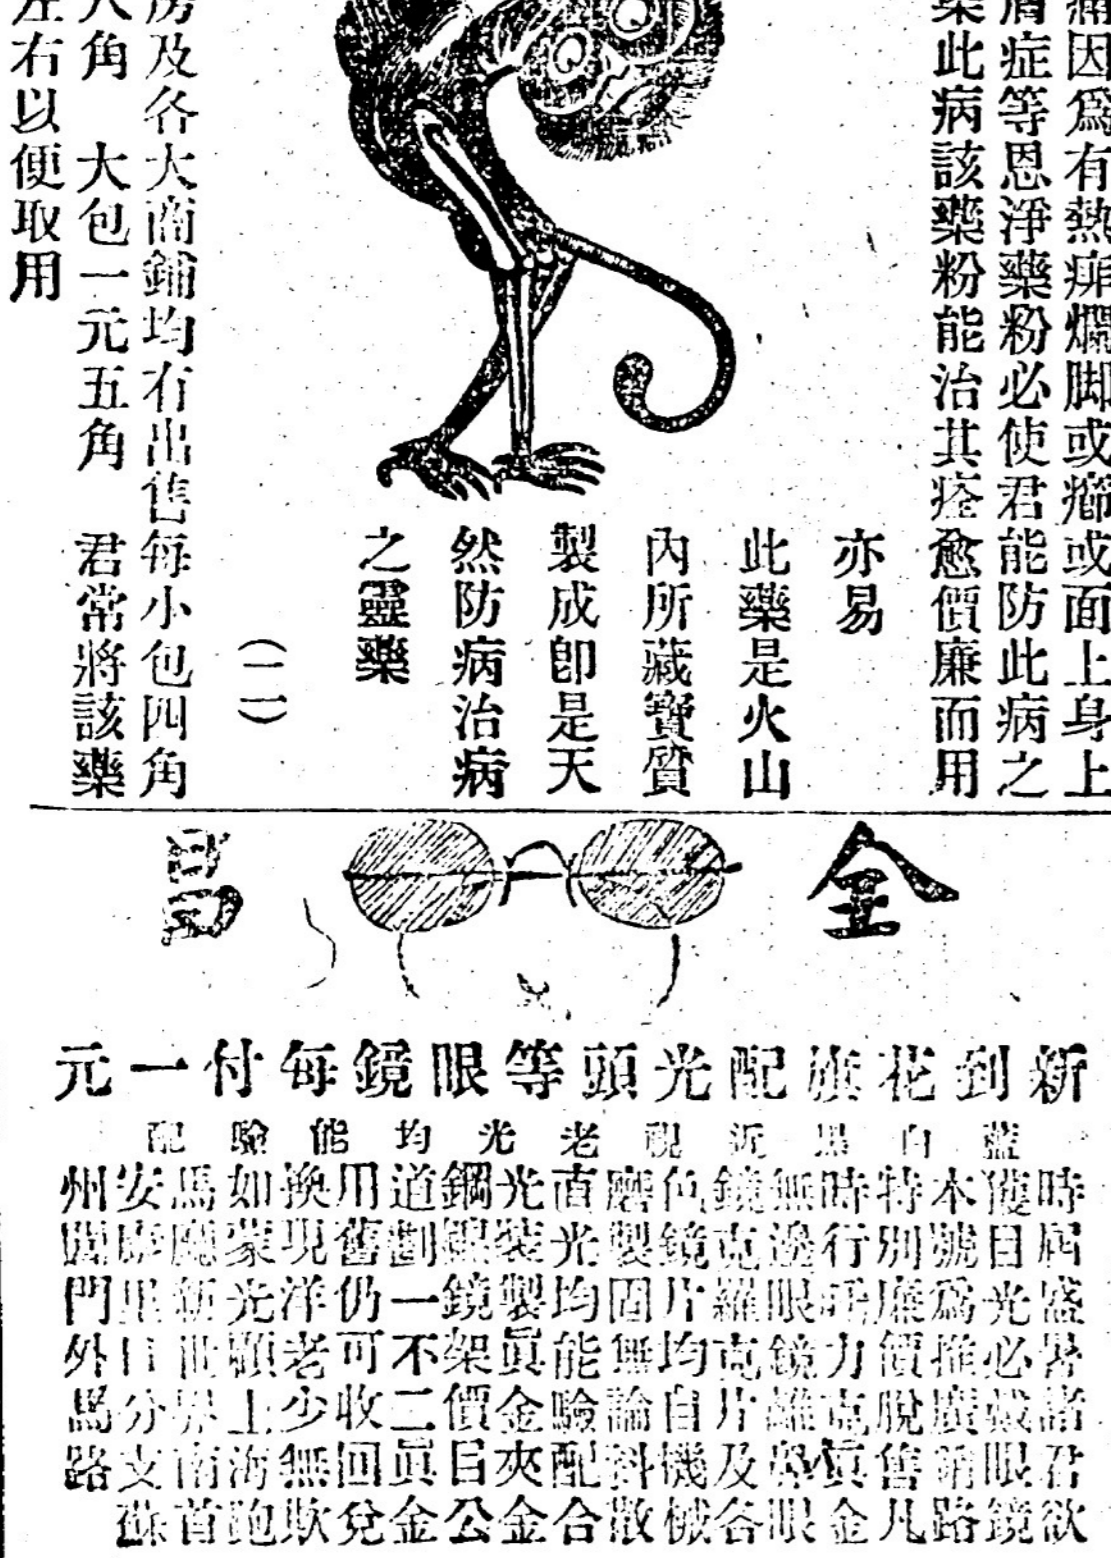 痛因爲有熱疿爛脚或癤或面上身上
膚症等恩淨藥粉必使君能防此病之
此病該藥粉能治其痊愈價廉而用
亦易
此藥是火山
內所藏寶質
製成卽是天
然防病治病
之靈藥
(一二)
及各大商鋪均有出售每小包四角
八角 大包一元五角 君常將該藥
左右以便取用
金昌
新到花旗配光頭等眼鏡每付一元
藍白黑近視老光均能驗配
時屆盛暑諸君欲
護目光必戴眼鏡
本號爲推廣銷路
特別廉價脫售凡
時行呼力克眞金
無邊眼鏡鼻眼
鏡克羅克片及各
色鏡片均自機械
磨製固無論科散
直光均能驗配合
光裝製眞金夾金
鋼鏡架價目公
道劃一不二眞金
用舊仍可收回兌
換現洋老少無欺
如蒙光顧上海跑
馬廳新世界南首
安里口分支蘇
州閶門外馬路